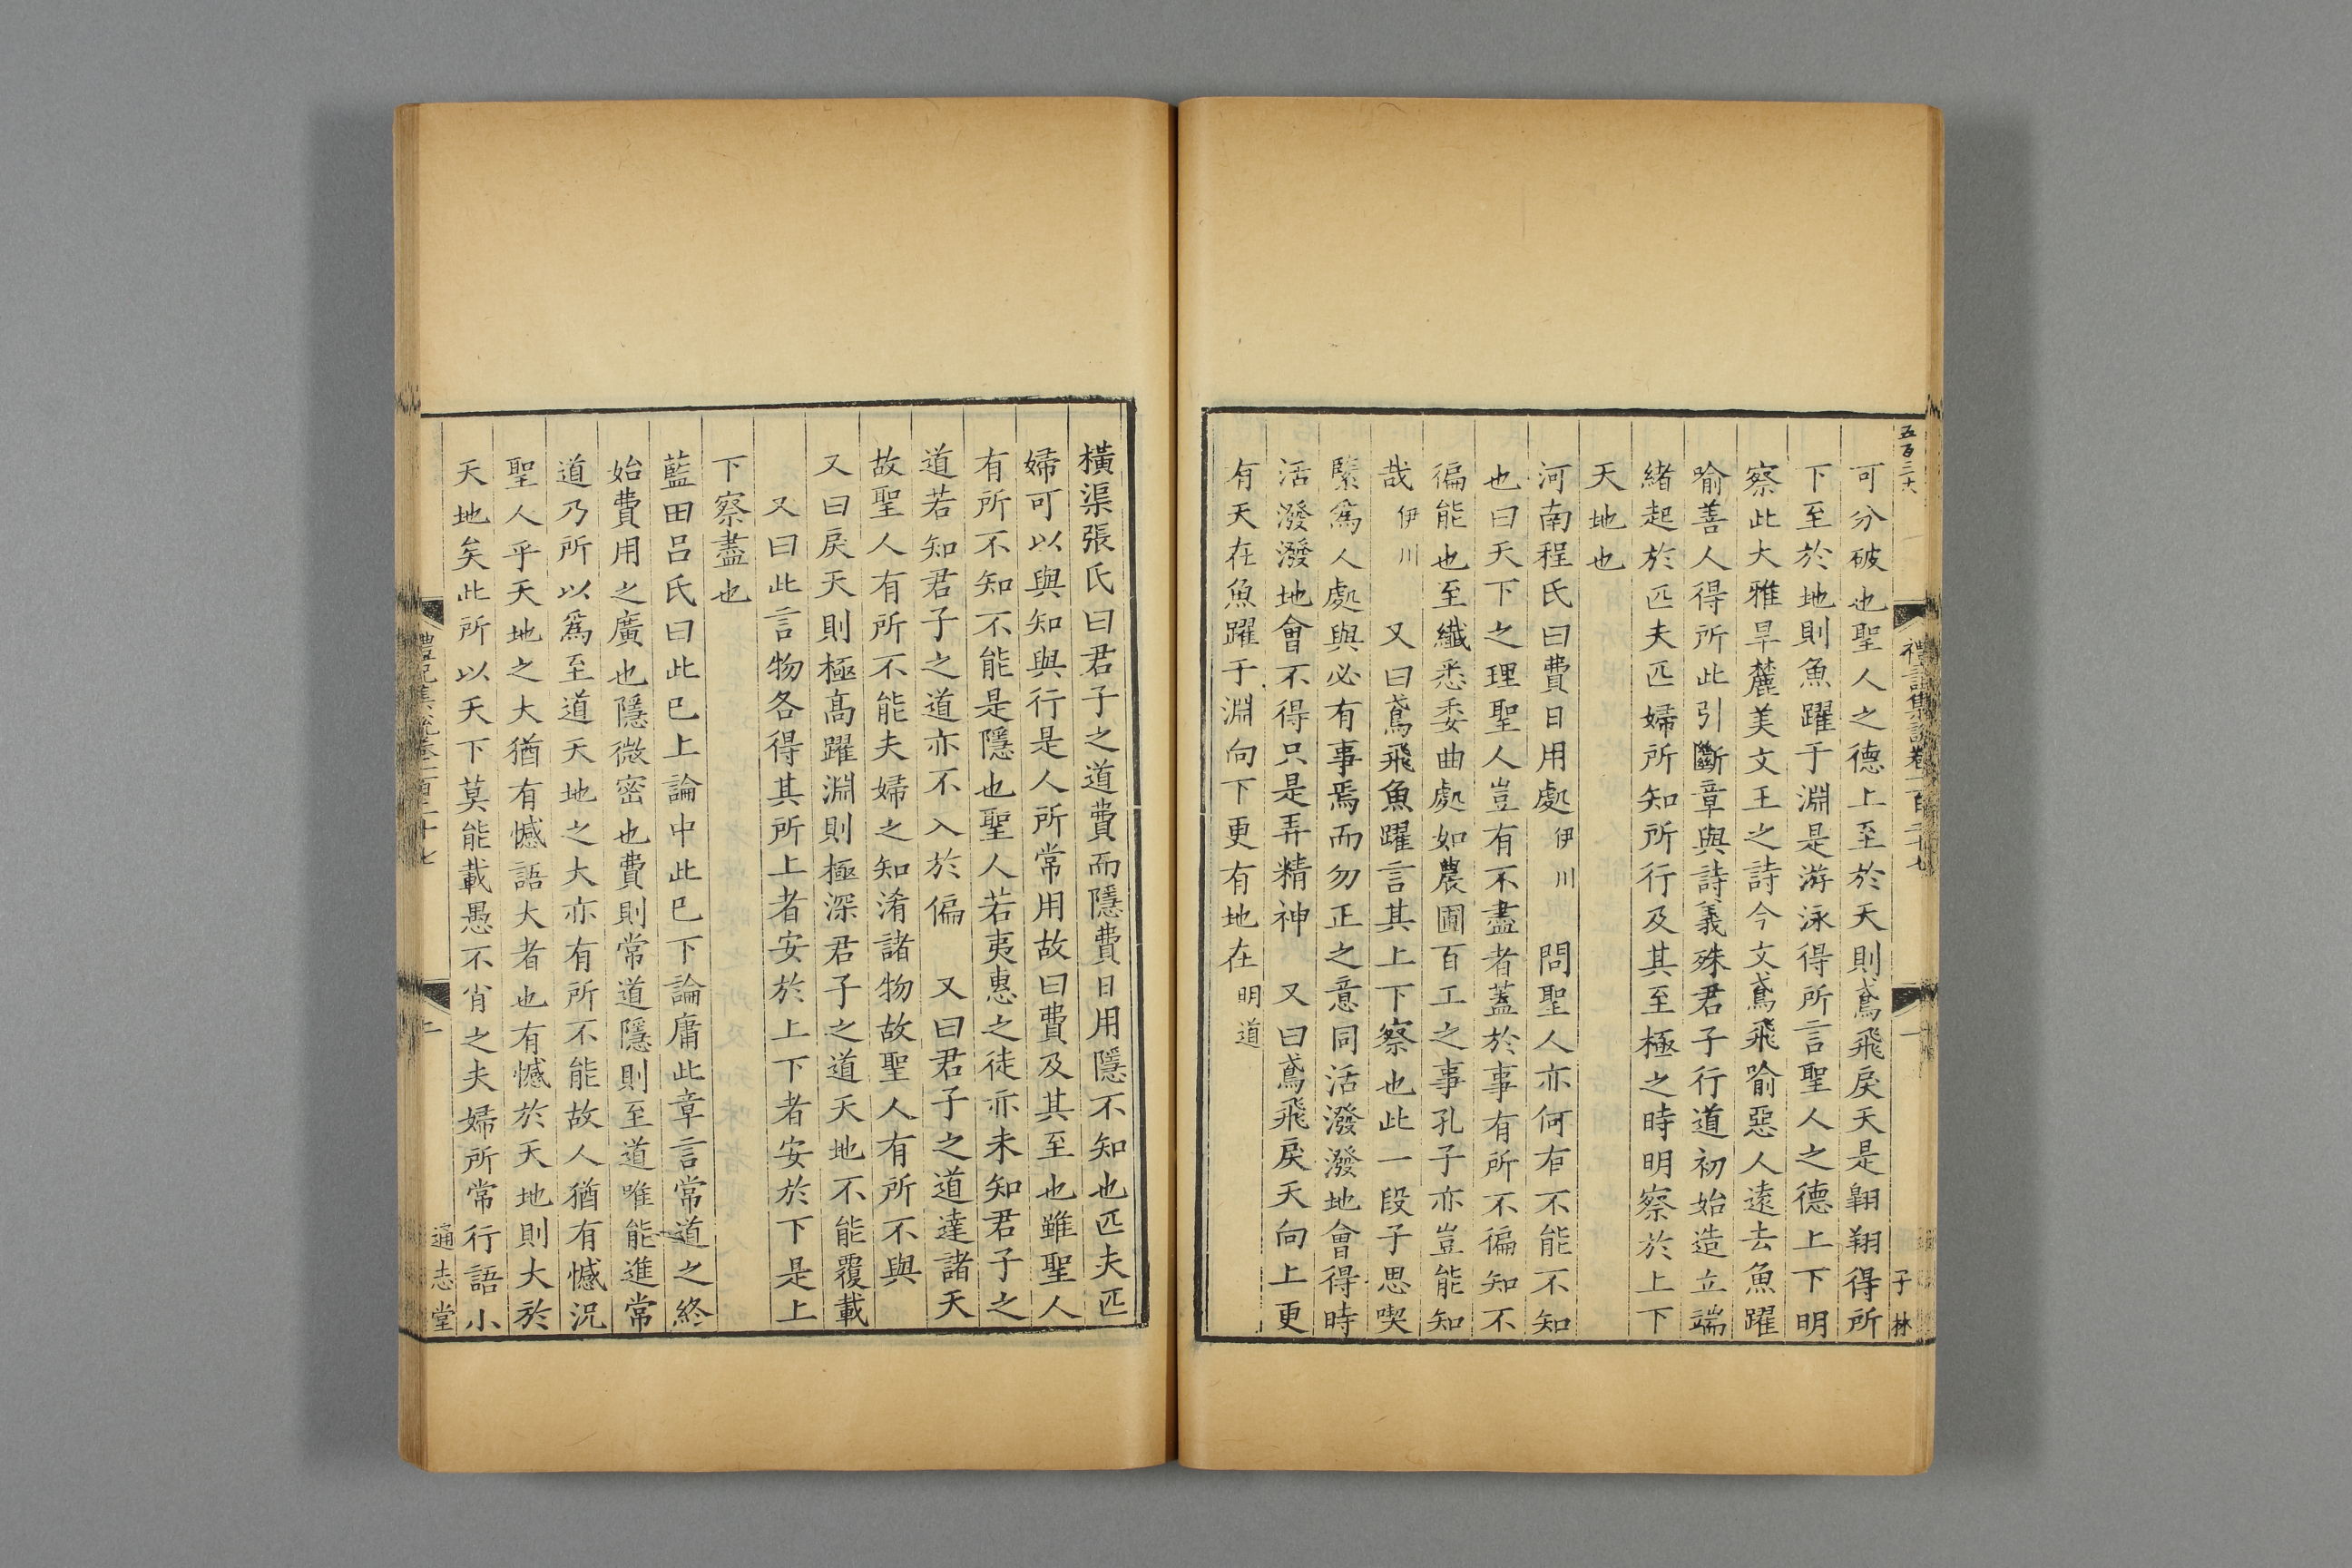 五百三十六
禮記集說卷一百二十七
一
子林
可分破也聖人之德上至於天則鳶飛戾天是翺翔得所
下至於地則魚躍于淵是游泳得所言聖人之德上下明
察此大雅旱麓美文王之詩今文鳶飛喻惡人遠去魚躍
喻善人得所此引斷章與詩義殊君子行道初始造立端
緒起於匹夫匹婦所知所行及其至極之時明察於上下
天地也
河南程氏曰費日用處伊川 問聖人亦何有不能不知
也曰天下之理聖人豈有不盡者蓋於事有所不徧知不
徧能也至纖悉委曲處如農圃百工之事孔子亦豈能知
哉伊川 又曰鳶飛魚躍言其上下察也此一段子思喫
緊爲人處與必有事焉而勿正之意同活潑潑地會得時
活潑潑地會不得只是弄精神 又曰鳶飛戾天向上更
有天在魚躍于淵向下更有地在明道
橫渠張氏曰君子之道費而隱費日用隱不知也匹夫匹
婦可以與知與行是人所常用故曰費及其至也雖聖人
有所不知不能是隱也聖人若夷惠之徒亦未知君子之
道若知君子之道亦不入於偏 又曰君子之道達諸天
故聖人有所不能夫婦之知淆諸物故聖人有所不與
又曰戾天則極髙躍淵則極深君子之道天地不能覆載
又曰此言物各得其所上者安於上下者安於下是上
下察盡也
藍田呂氏曰此已上論中此已下論庸此章言常道之終
始費用之廣也隱微密也費則常道隱則至道唯能進常
道乃所以爲至道天地之大亦有所不能故人猶有憾況
聖人乎天地之大猶有憾語大者也有憾於天地則大於
天地矣此所以天下莫能載愚不肖之夫婦所常行語小
禮記集說卷一百二十七
二
通志堂